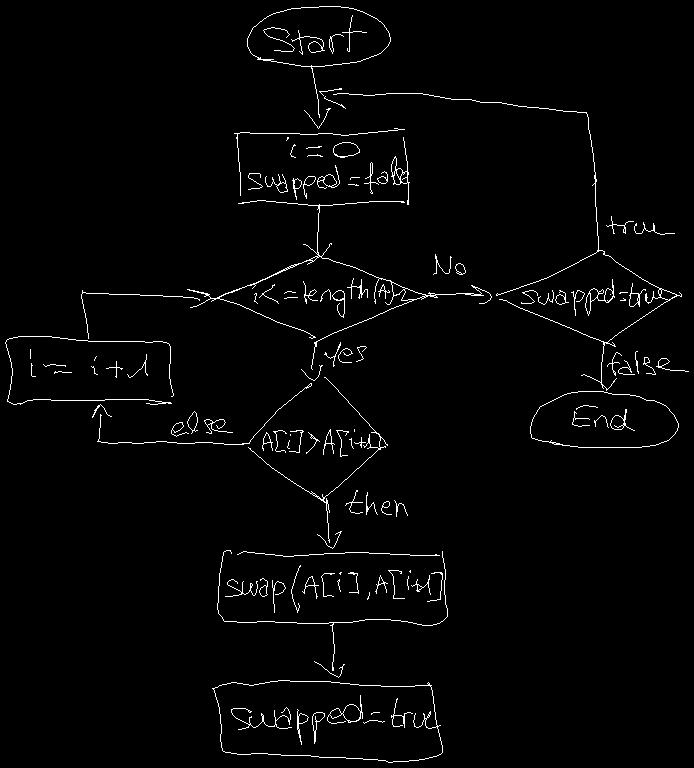 Start
i=0
swapped=false
i<=length(A)-2
No
swapped=true
true
false
End
Yes
i=i+1
else
A[i]>A[i+1]
then
swap(A[i],A[i+1]
swapped=true